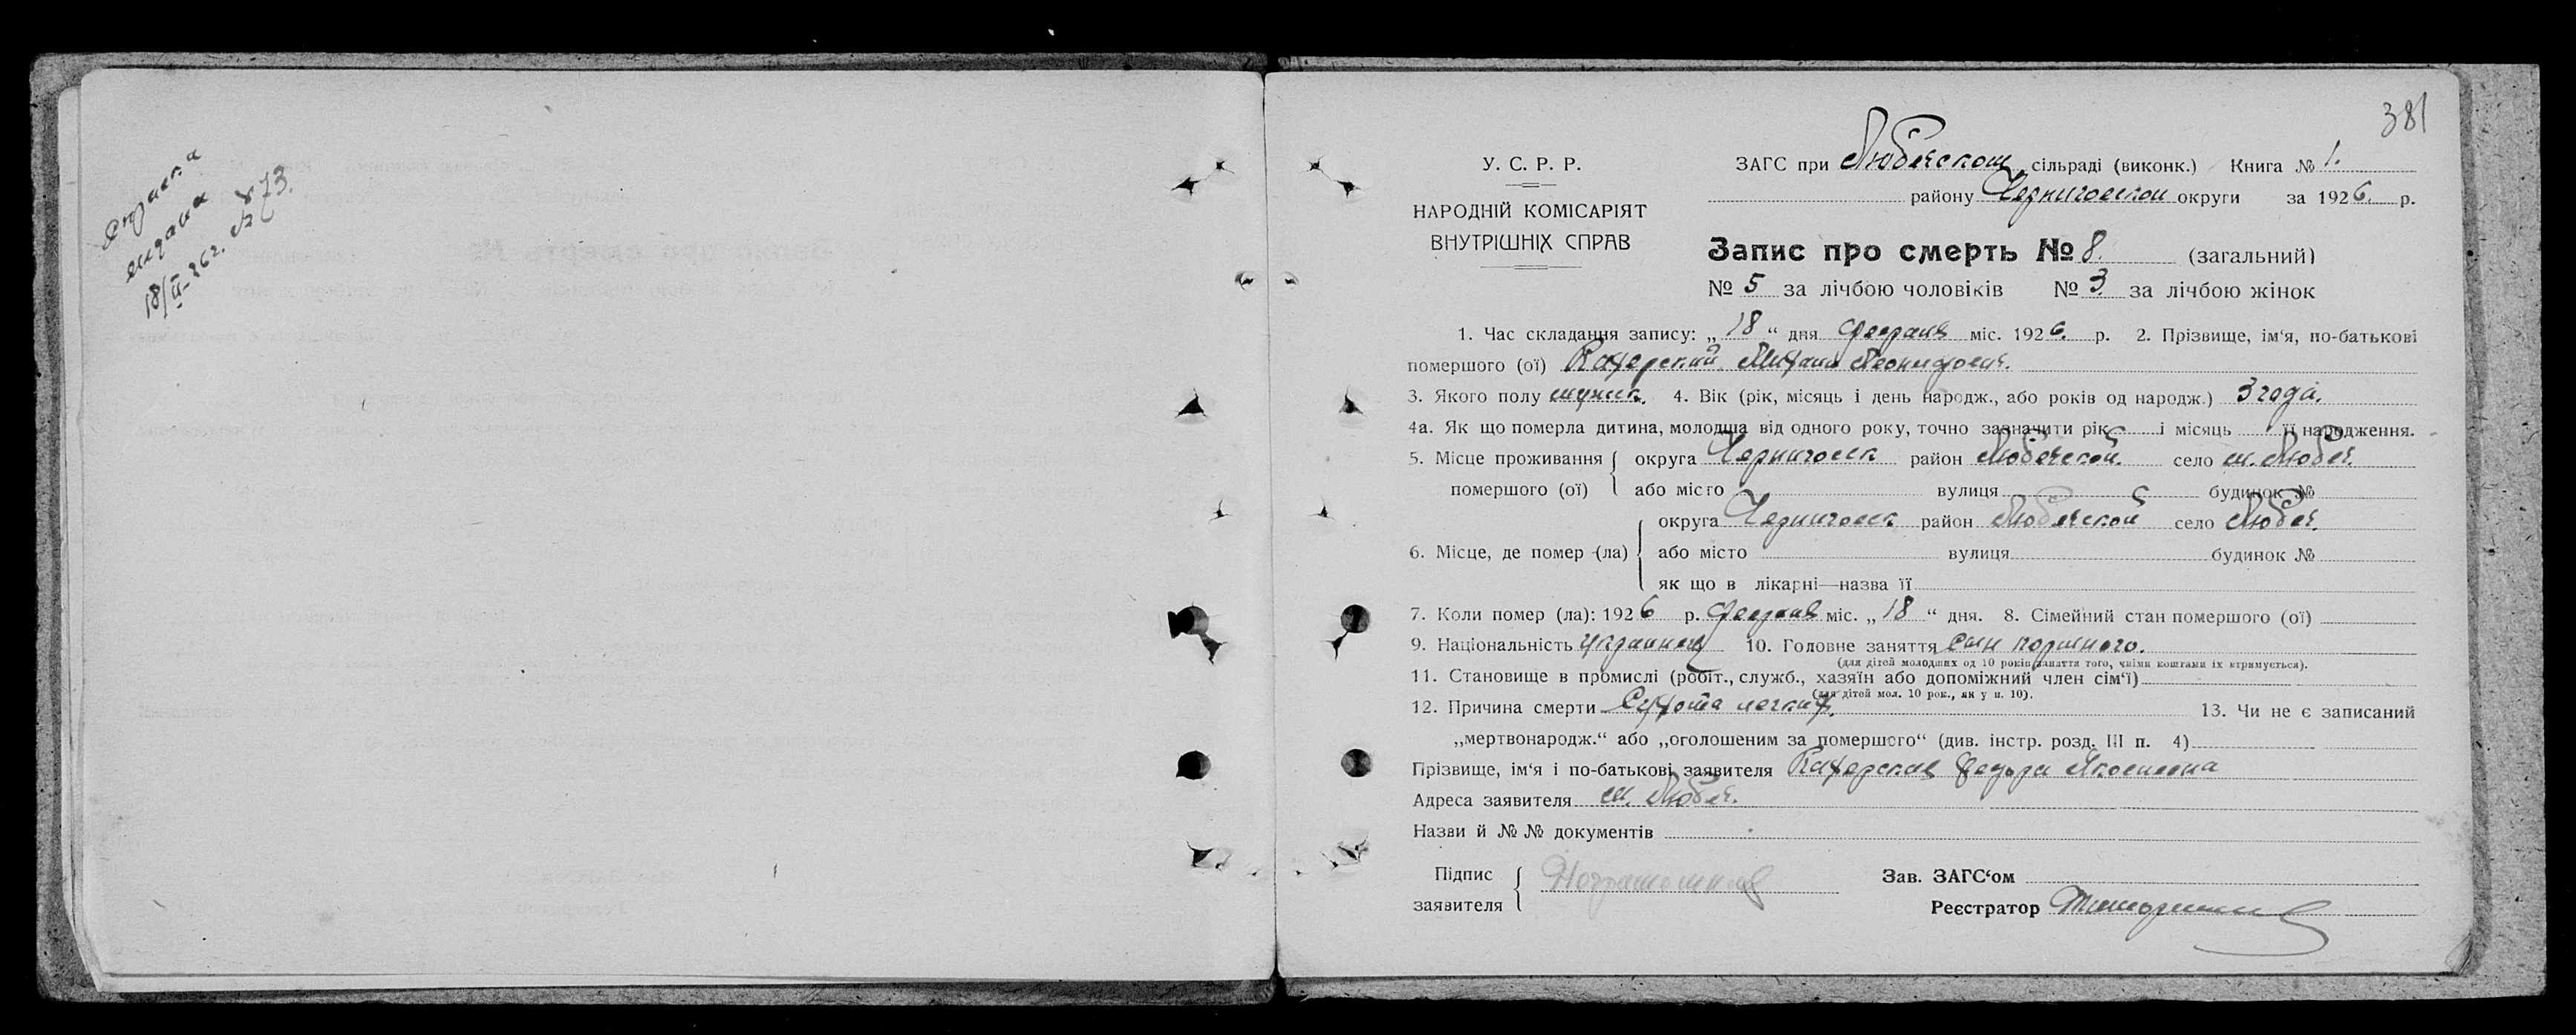 Справка
выдана
18/II-26 г. № 73.
381
У. С. Р. Р.
НАРОДНІЙ КОМІСАРІЯТ
ВНУТРІШНІХ СПРАВ
ЗАГС при Любечском сільраді (виконк.) Книга № 1.
району Черниговской округи за 1926. р.
Запис про смерть № 8. (загальний)
№ 5 за лічбою чоловіків № 3 за лічбою жінок
1. Час складання запису: „18“ дня февраля міс. 1926. р. 2. Прізвище, ім‘я, по-батькові
помершого (ої) Михаил Леонидович.
3. Якого полу мужск. 4. Вік (рік, місяць і день народж., або років од народж.) 3 года.
4а. Як що померла дитина, молодша від одного року, точно зазначити рік і місяць її народження.
5. Місце проживання округа Черниговск район Любечской село м. Любеч.
помершого (ої) або місто вулиця будинок №
округа Черниговск район Любечской село Любеч.
6. Місце, де помер (ла) або місто вулиця будинок №
як що в лікарні—назва її
7. Коли помер (ла): 1926 р. февраля міс. „18“ дня. 8. Сімейний стан помершого (ої)
9. Національність украинец 10. Головне заняття сын портного.
(для дітей молодших од 10 років заняття того, чиїми коштами їх втримується).
11. Становище в промислі (робіт., служб., хазяїн або допоміжний член сім‘ї)
(для дітей мол. 10 рок., як у п. 10).
12. Причина смерти легких. 13. Чи не є записаний
„мертвонародж.“ або „оголошеним за помершого“ (див. інстр. розд. III п. 4)
Прізвище, ім‘я і по-батькові заявителя Яковлевна
Адреса заявителя м. Любеч.
Назви й № № документів
Підпис
заявителя Неграмотная
Зав. ЗАГС‘ом
Реєстратор